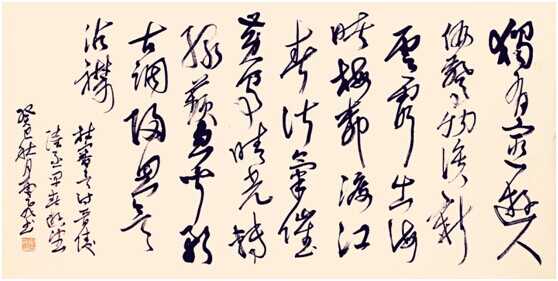 獨有宦遊人
偏驚物候新
雲霞出海
曙梅柳渡江
春淑氣催
黃鳥晴光轉
綠蘋忽聞歌
古調歸思欲
沾襟
杜審言晉陵
陸丞早春遊望
癸巳秋月書